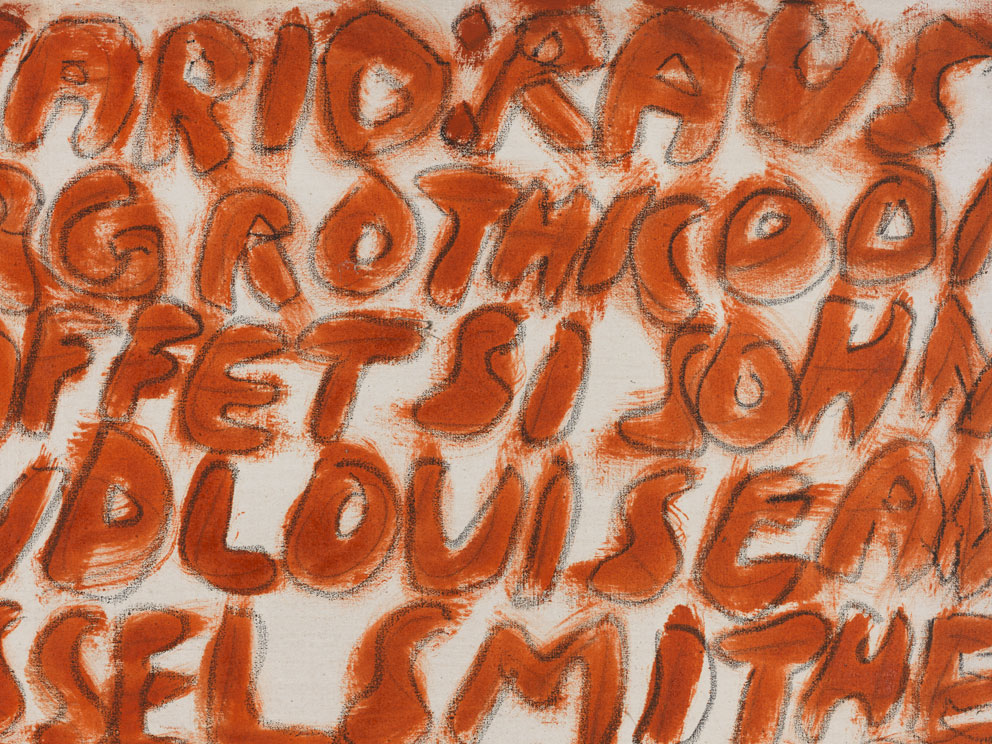 ARIO:RAUS
GGROTHICOO
FFETSISOHN
UDLOUISEAN
SSELSMITHE